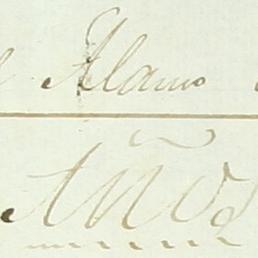 Alamo
Años